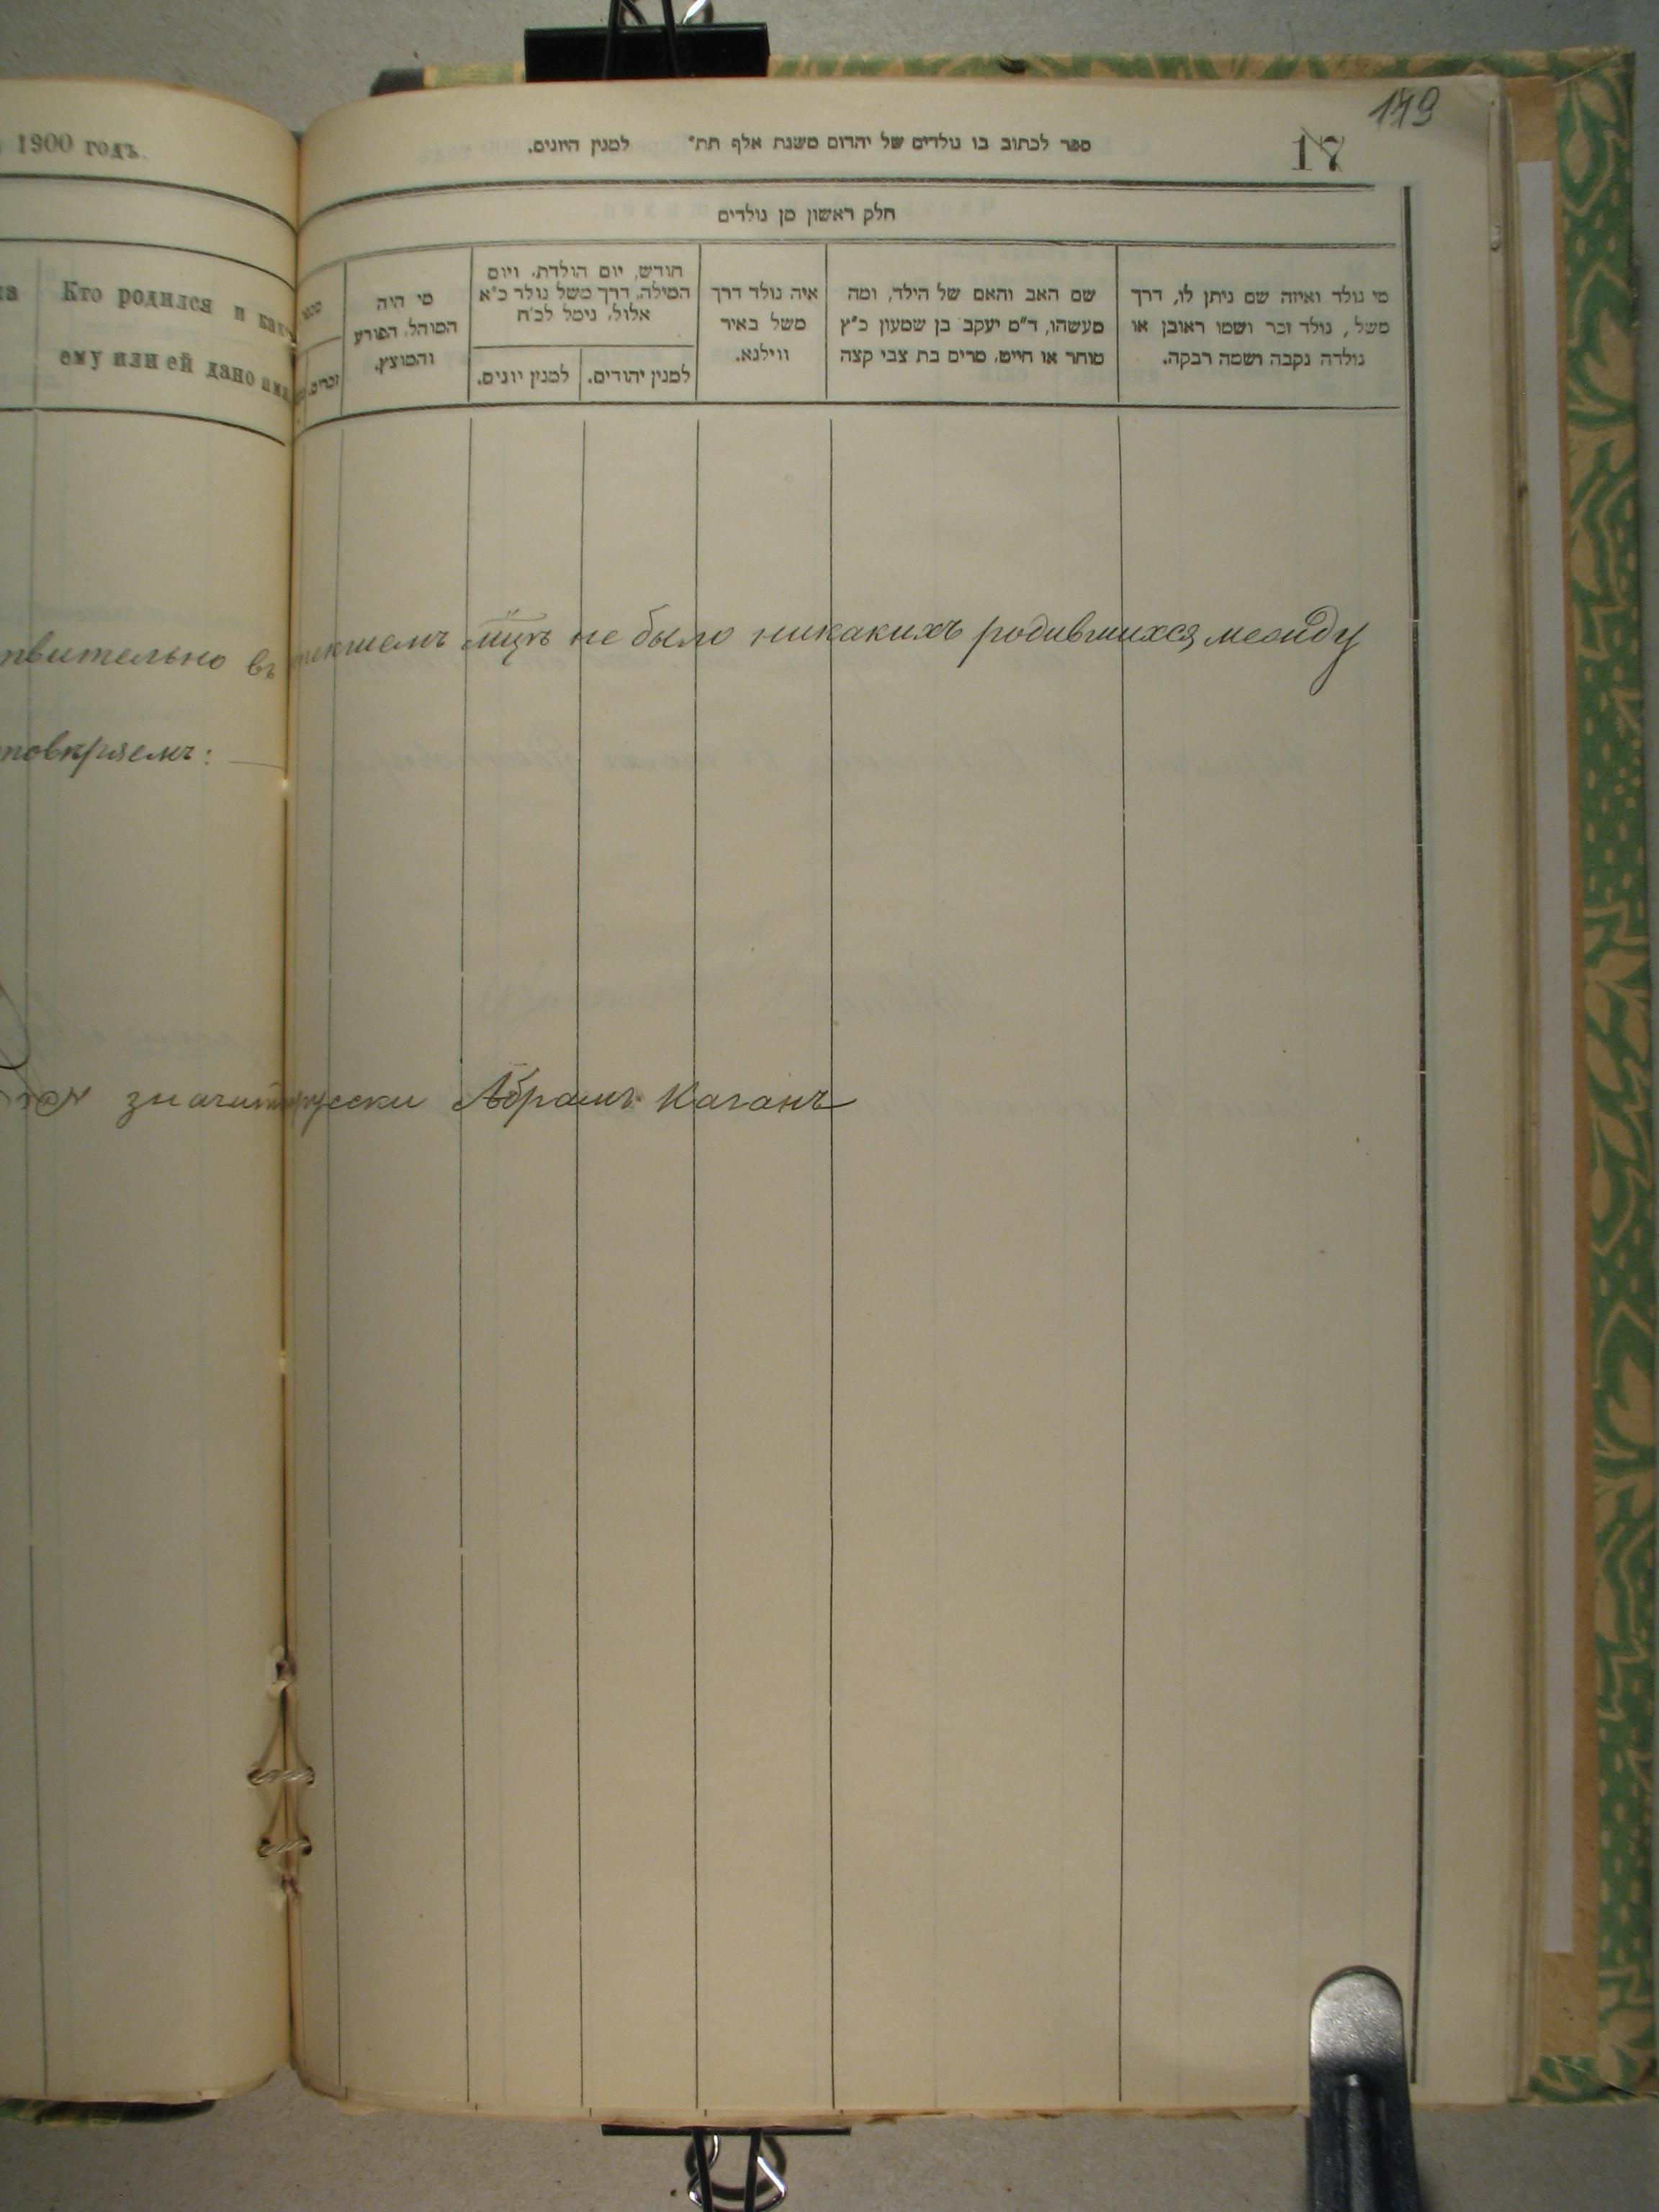 149
17
1900 годъ.
ספר לכתוב בו נולדים של יהדום משנת אלף תת״ למנין היונים.
חלק ראשון מן נולדים
Кто родился и как
ему или ей дано имя
מי היה
המוהל, הפורע
והמוצץ.
חודש, יום הולדת, ויום
המילה, דרך משל נולד כ״א
אלול, נימל לכ״ח
למנין יהודים.
למנין יונים.
איה נולד דרך
משל באיר
ווילנא.
שם האב והאם של הילד, ומה
מעשהו, ד״מ יעקב בן שמעון כ״ץ
סוחר או חייט, מרים בת צבי קצה
מי נולד ואיזה שם ניתן לו, דרך
משל, נולד זכר ושמו ראובן או
נולדה נקבה ושמה רבקה.
זכרים.
твительно въ текшемъ мцѣ не было никакихъ родившихся между
товѣряемъ:
значитъ русски Абрамъ Каганъ